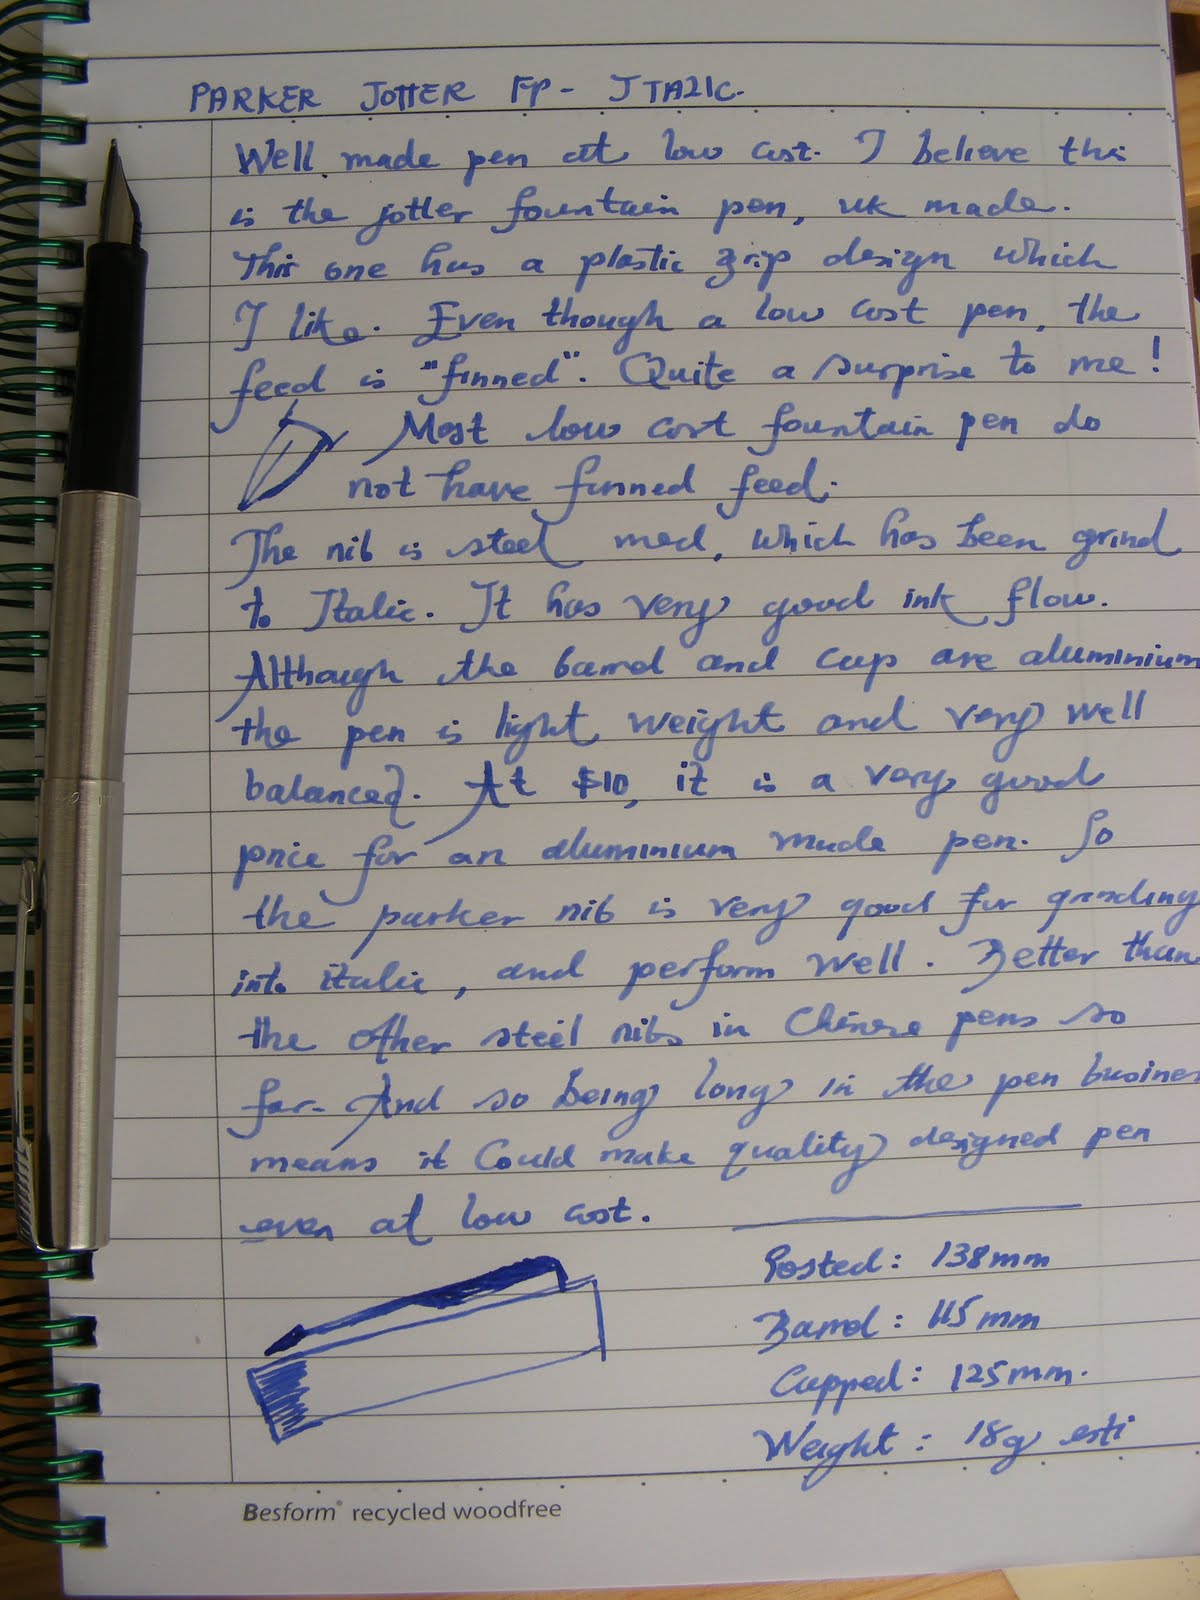 PARKER JOTTER FP - ITALIC.
Well made pen at low cost. I believe this
is the jotter fountain pen, UK made.
This one has a plastic grip design which
I like. Even though a low cost pen, the
feed is "finned". Quite a surprise to me!
Most low cost fountain pen do
not have finned feed.
The nib is steel mad, which has been grind
to Italic. It has very good ink flow.
Although the barrel and cap are aluminium
the pen is light weight and very well
balanced. At $10, it is a very good
price for an aluminium made pen. So
the parker nib is very good for grinding
into italic, and perform well. Better than
the other steel nibs in Chinese pens so
far. And so being long in the pen busines
means it could make quality designed pen
even at low cost.
Posted: 138mm
Barrel: 115mm
Capped: 125mm.
Weight: 18g esti
Besform® recycled woodfree